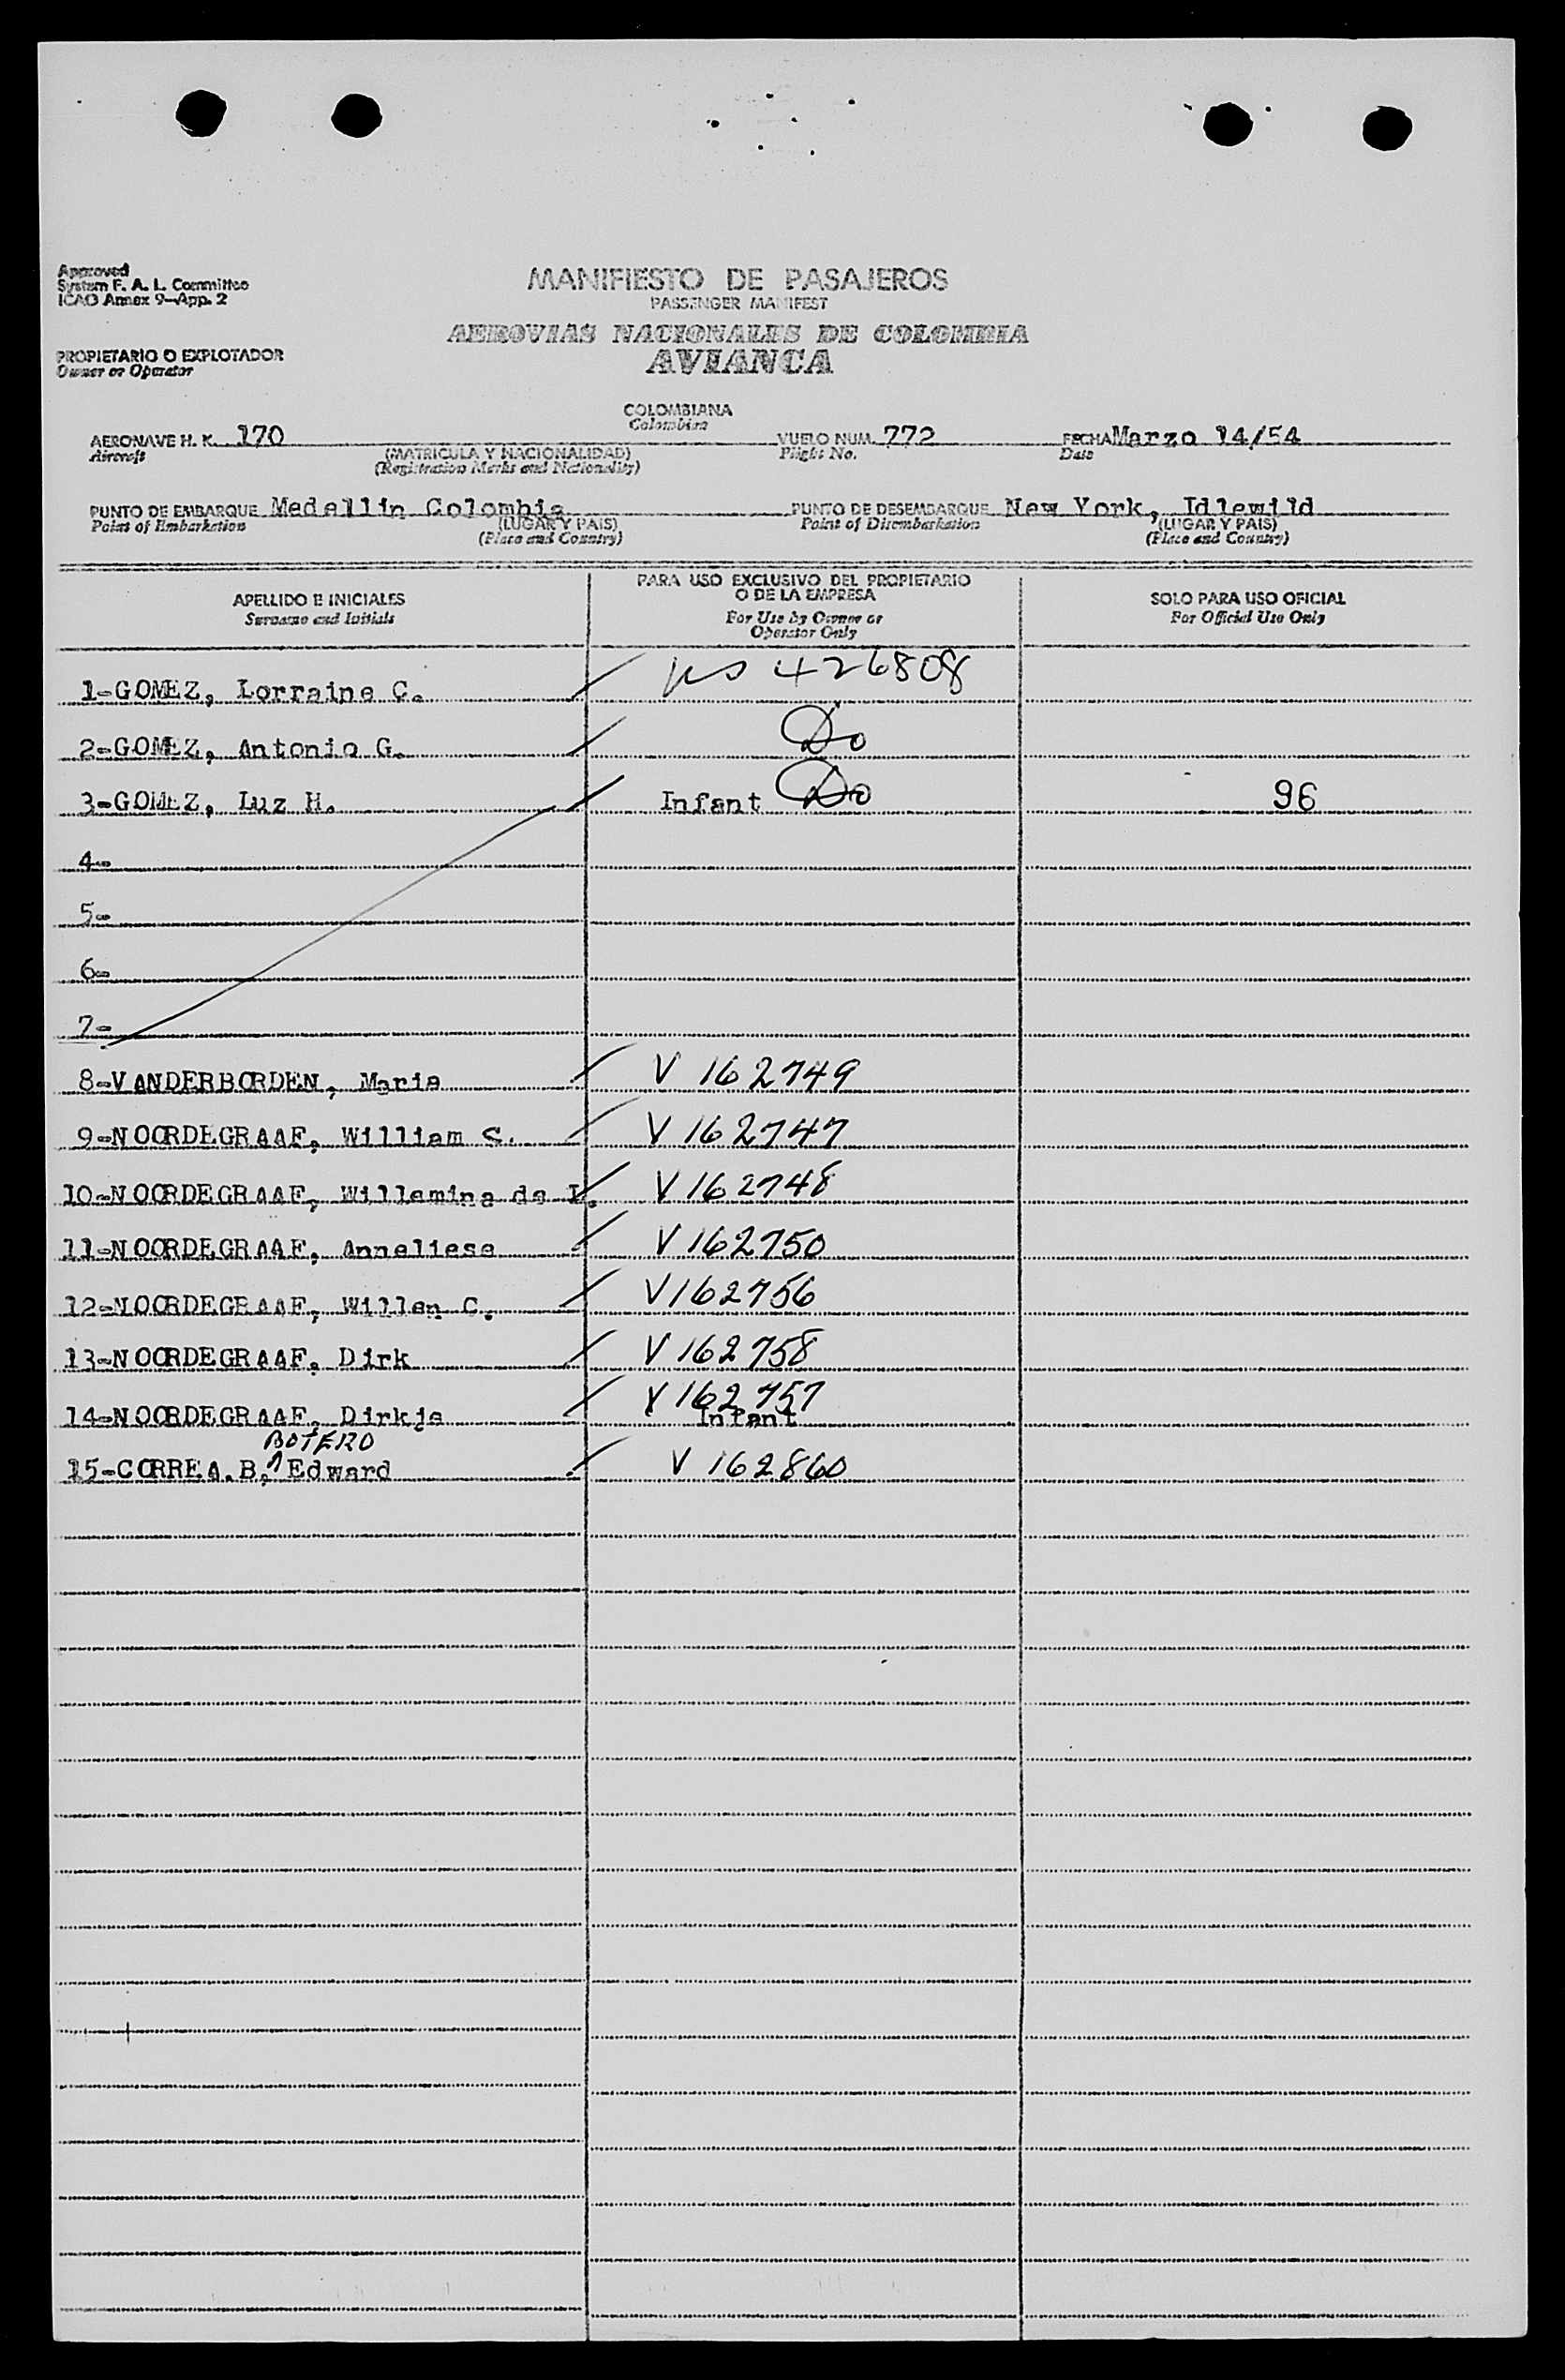 Approved
System F. A. L. Committee
ICAO Annex 9-App. 2
MANIFIESTO DE PASAJEROS
PASSENGER MANIFEST
AEROVIAS NACIONALES DE COLOMBIA
AVIANCA
PROPIETARIO O EXPLOTADOR
Owner or Operator
COLOMBIANA
Colombian
AERONAVE H. K. 170 VUELO NUM. 772 FECHA Marzo 14/54
Aircraft (MATRICULA Y NACIONALIDAD) Flight No. Date
(Registration Marks and Nationality)
PUNTO DE EMBARQUE Medellin Colombia PUNTO DE DESEMBARQUE New York, Idlewild
Point of Embarkation (LUGAR Y PAIS) Point of Disembarkation (LUGAR Y PAIS)
(Place and Country) (Place and Country)
APELLIDO E INICIALES PARA USO EXCLUSIVO DEL PROPIETARIO O DE LA EMPRESA SOLO PARA USO OFICIAL
Surname and Initials For Use by Owner or Operator Only For Official Use Only
1-GOMEZ, Lorraine C. 426808
2-GOMEZ, Antonio G. Do
3-GOMEZ, Luz H. Infant Do 96
4-
5-
6-
7-
8-VANDERBORDEN, Maria V 162749
9-NOORDEGRAAF, William S. V 162747
10-NOORDEGRAAF, Willemina de L. V 162748
11-NOORDEGRAAF, Anneliese V 162750
12-NOORDEGRAAF, Willen C. V 162756
13-NOORDEGRAAF, Dirk V 162758
14-NOORDEGRAAF, Dirkje V 162757 Infant
BOTERO
15-CORREA.B, Edward V 162860